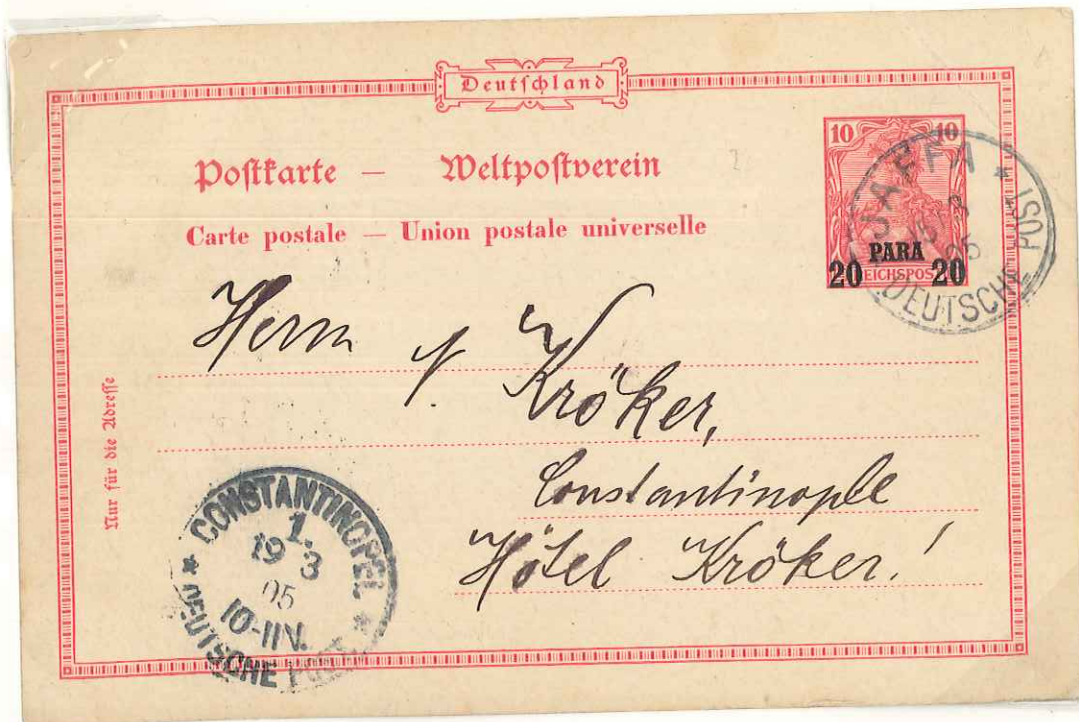 Deutschland
Postkarte — Weltpostverein
Carte postale — Union postale universelle
10 10
PARA
20 REICHSPOST 20
JAFFA
15/3
05
DEUTSCHE POST
Herrn
Kröker,
Constantinople
Hôtel Kröker!
Nur für die Adresse
CONSTANTINOPEL
1.
19 3
05
10-11V.
DEUTSCHE POST